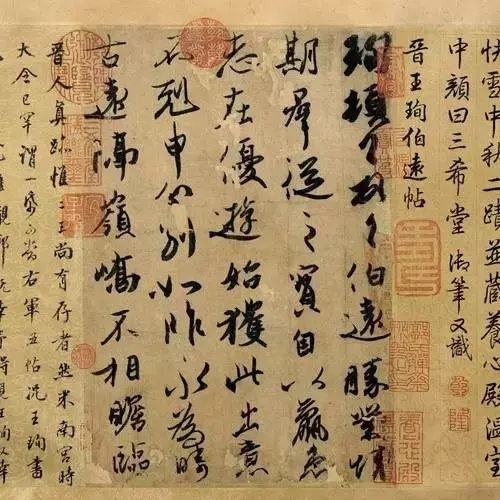 快雪中秋二蹟並藏養心殿溫室
中顏曰三希堂御筆又識
晉王珣伯遠帖
珣頓首頓首伯遠勝業情
期群從之寶自以羸患
志在優遊始獲此出意
不剋申分別如昨永為疇
古遠隔嶺嶠不相瞻臨
晉人真跡惟二王尚有存者然米南宮時
大令已罕謂一紙可當右軍五帖況王珣書
尤難覯耶既幸予得見王珣又幸